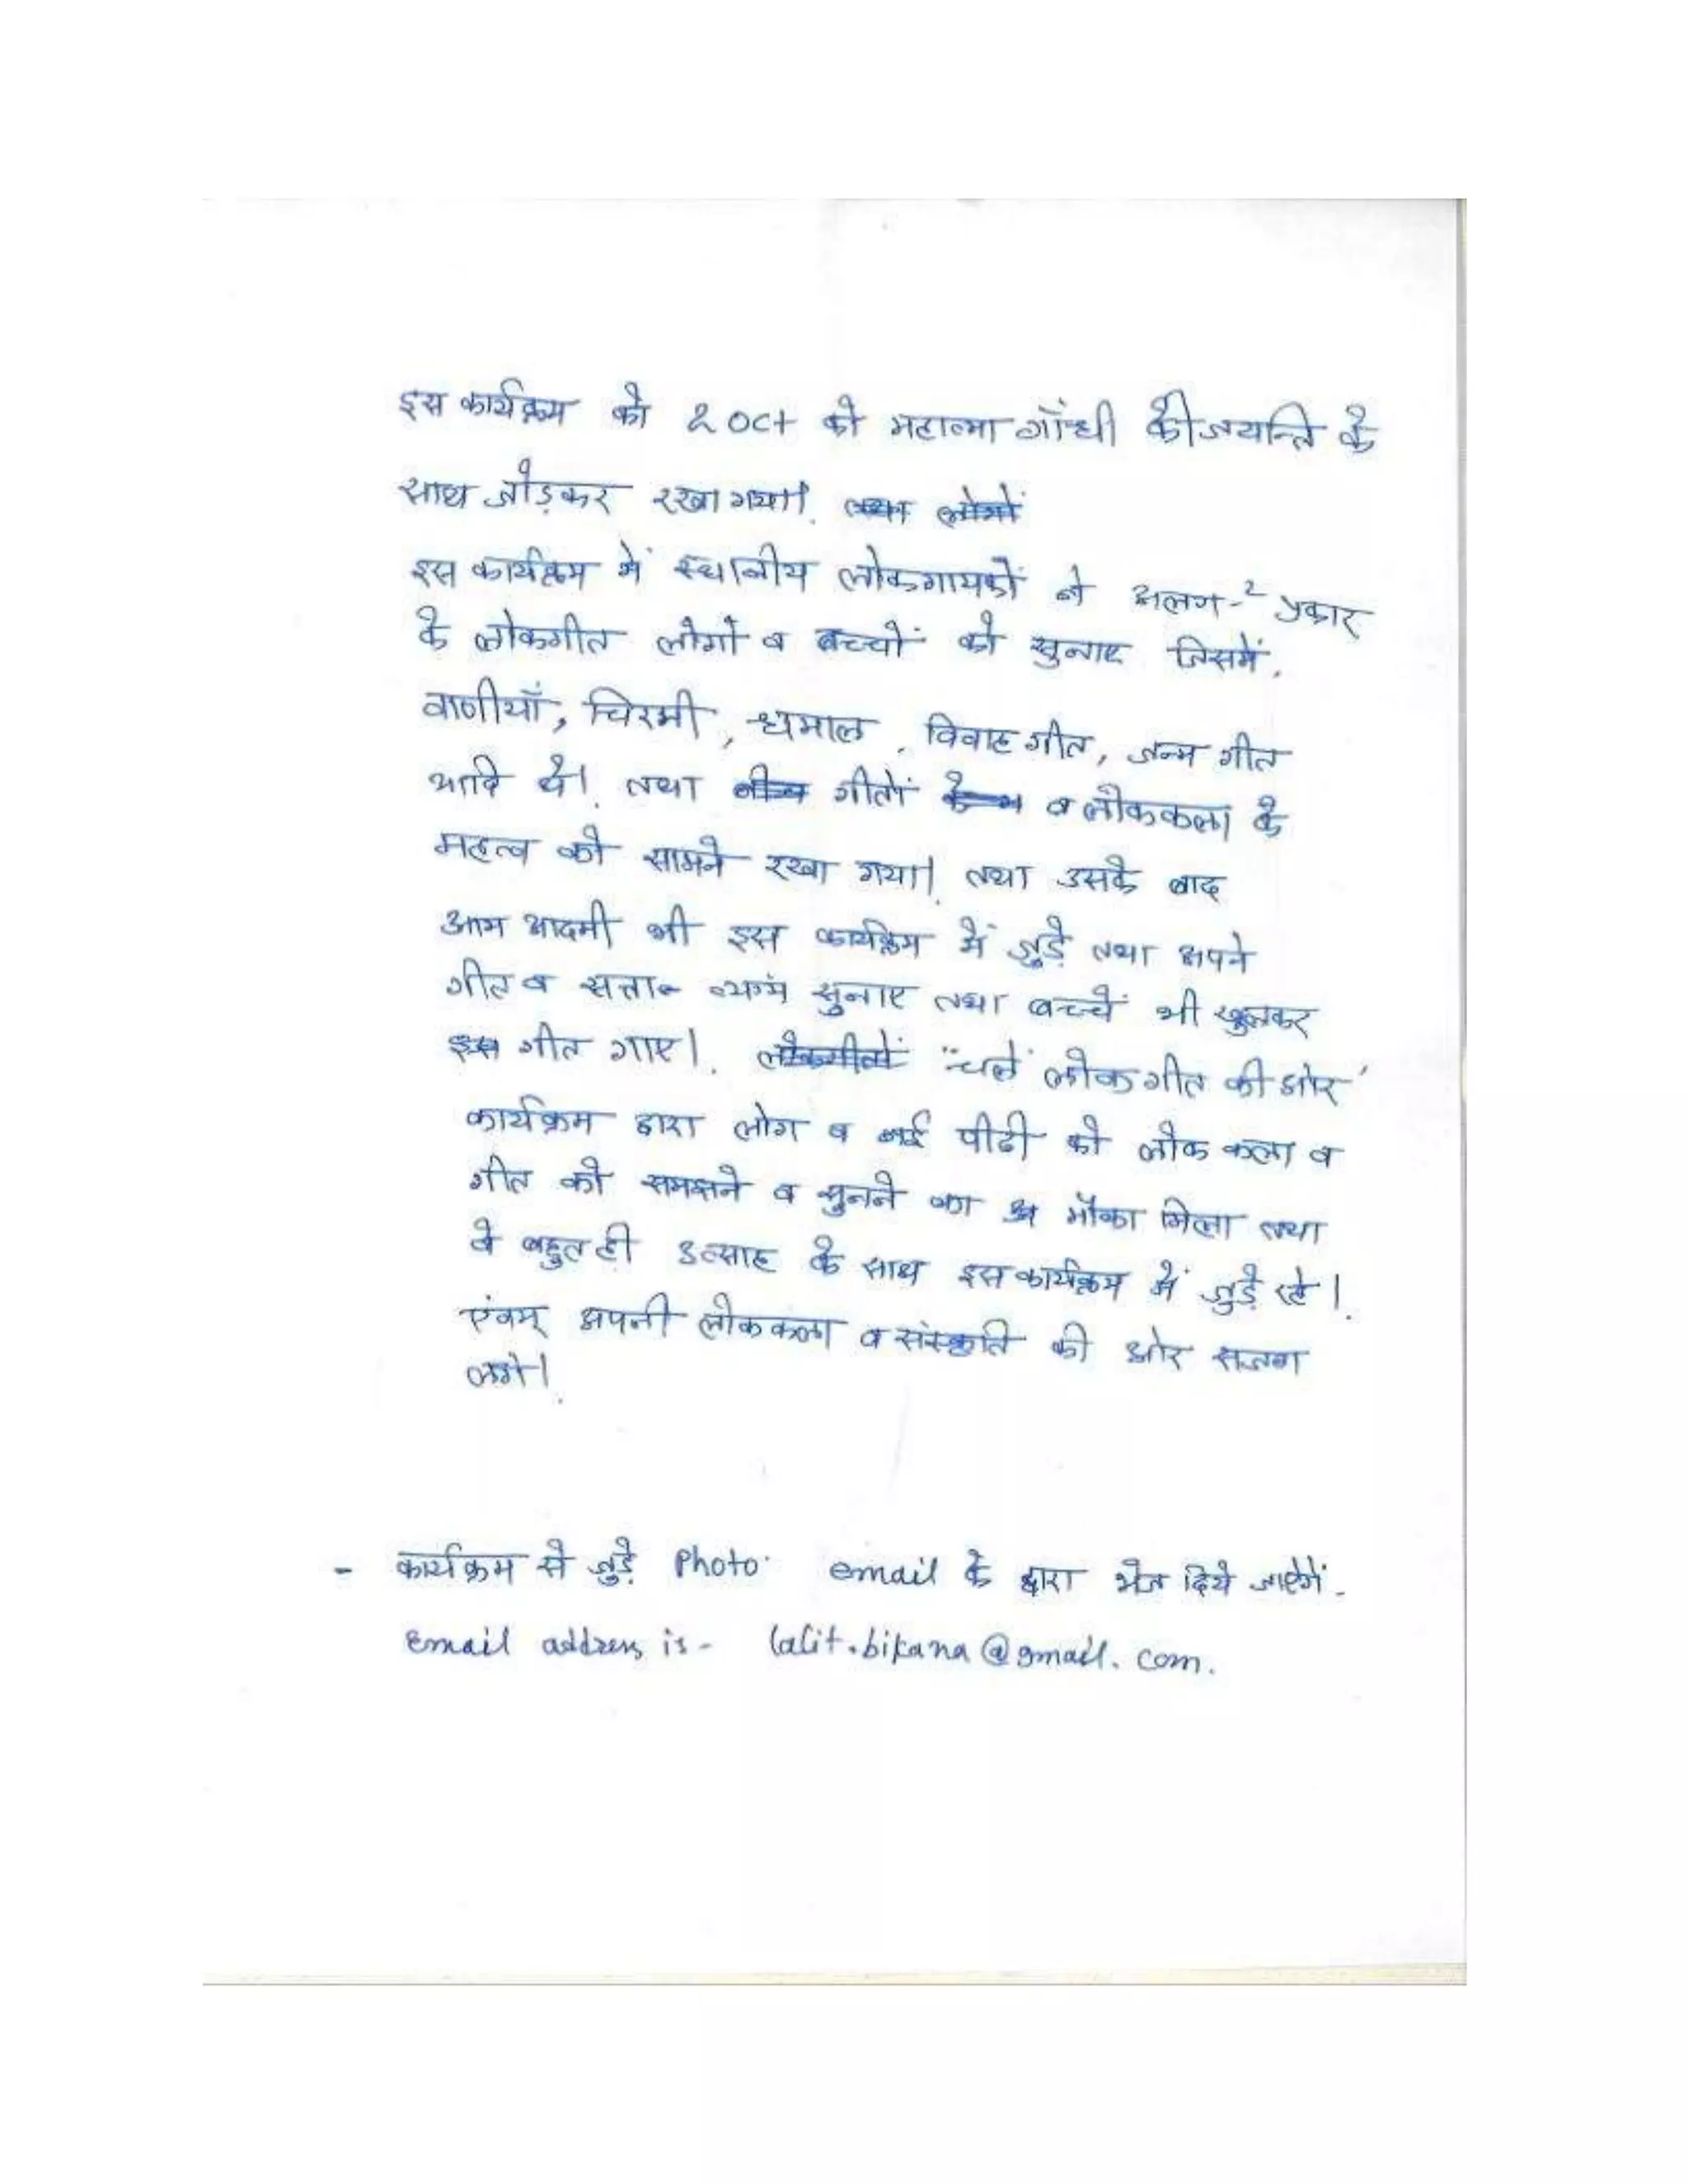 इस कार्यक्रम को 2 Oct को महात्मा गाँधी की जयन्ति के
साथ जोड़कर रखा गया।
इस कार्यक्रम में स्थानीय लोकगायकों ने अलग-2 प्रकार
के लोकगीत लोगों व बच्चों को सुनाए जिसमें,
वाणीयाँ, चिरमी, धमाल, विवाह गीत, जन्म गीत
आदि थे। तथा गीतों व लोककला के
महत्व को सामने रखा गया। तथा उसके बाद
आम आदमी भी इस कार्यक्रम में जुड़े तथा अपने
गीत व सुनाए तथा बच्चें भी खुलकर
गीत गाए। "चलें लोकगीत की ओर'
कार्यक्रम द्वारा लोग व नई पीढी को लोक कला व
गीत को समझने व सुनने का मौका मिला तथा
वे बहुत ही उत्साह के साथ इस कार्यक्रम में जुड़े रहे।
एंवम् अपनी लोककला व संस्कृति की ओर सजग
लगे।
- कार्यक्रम से जुड़े Photo email के द्वारा भेज दिये जाऐगें-
Email address is- lalit.bikana@gmail.com.